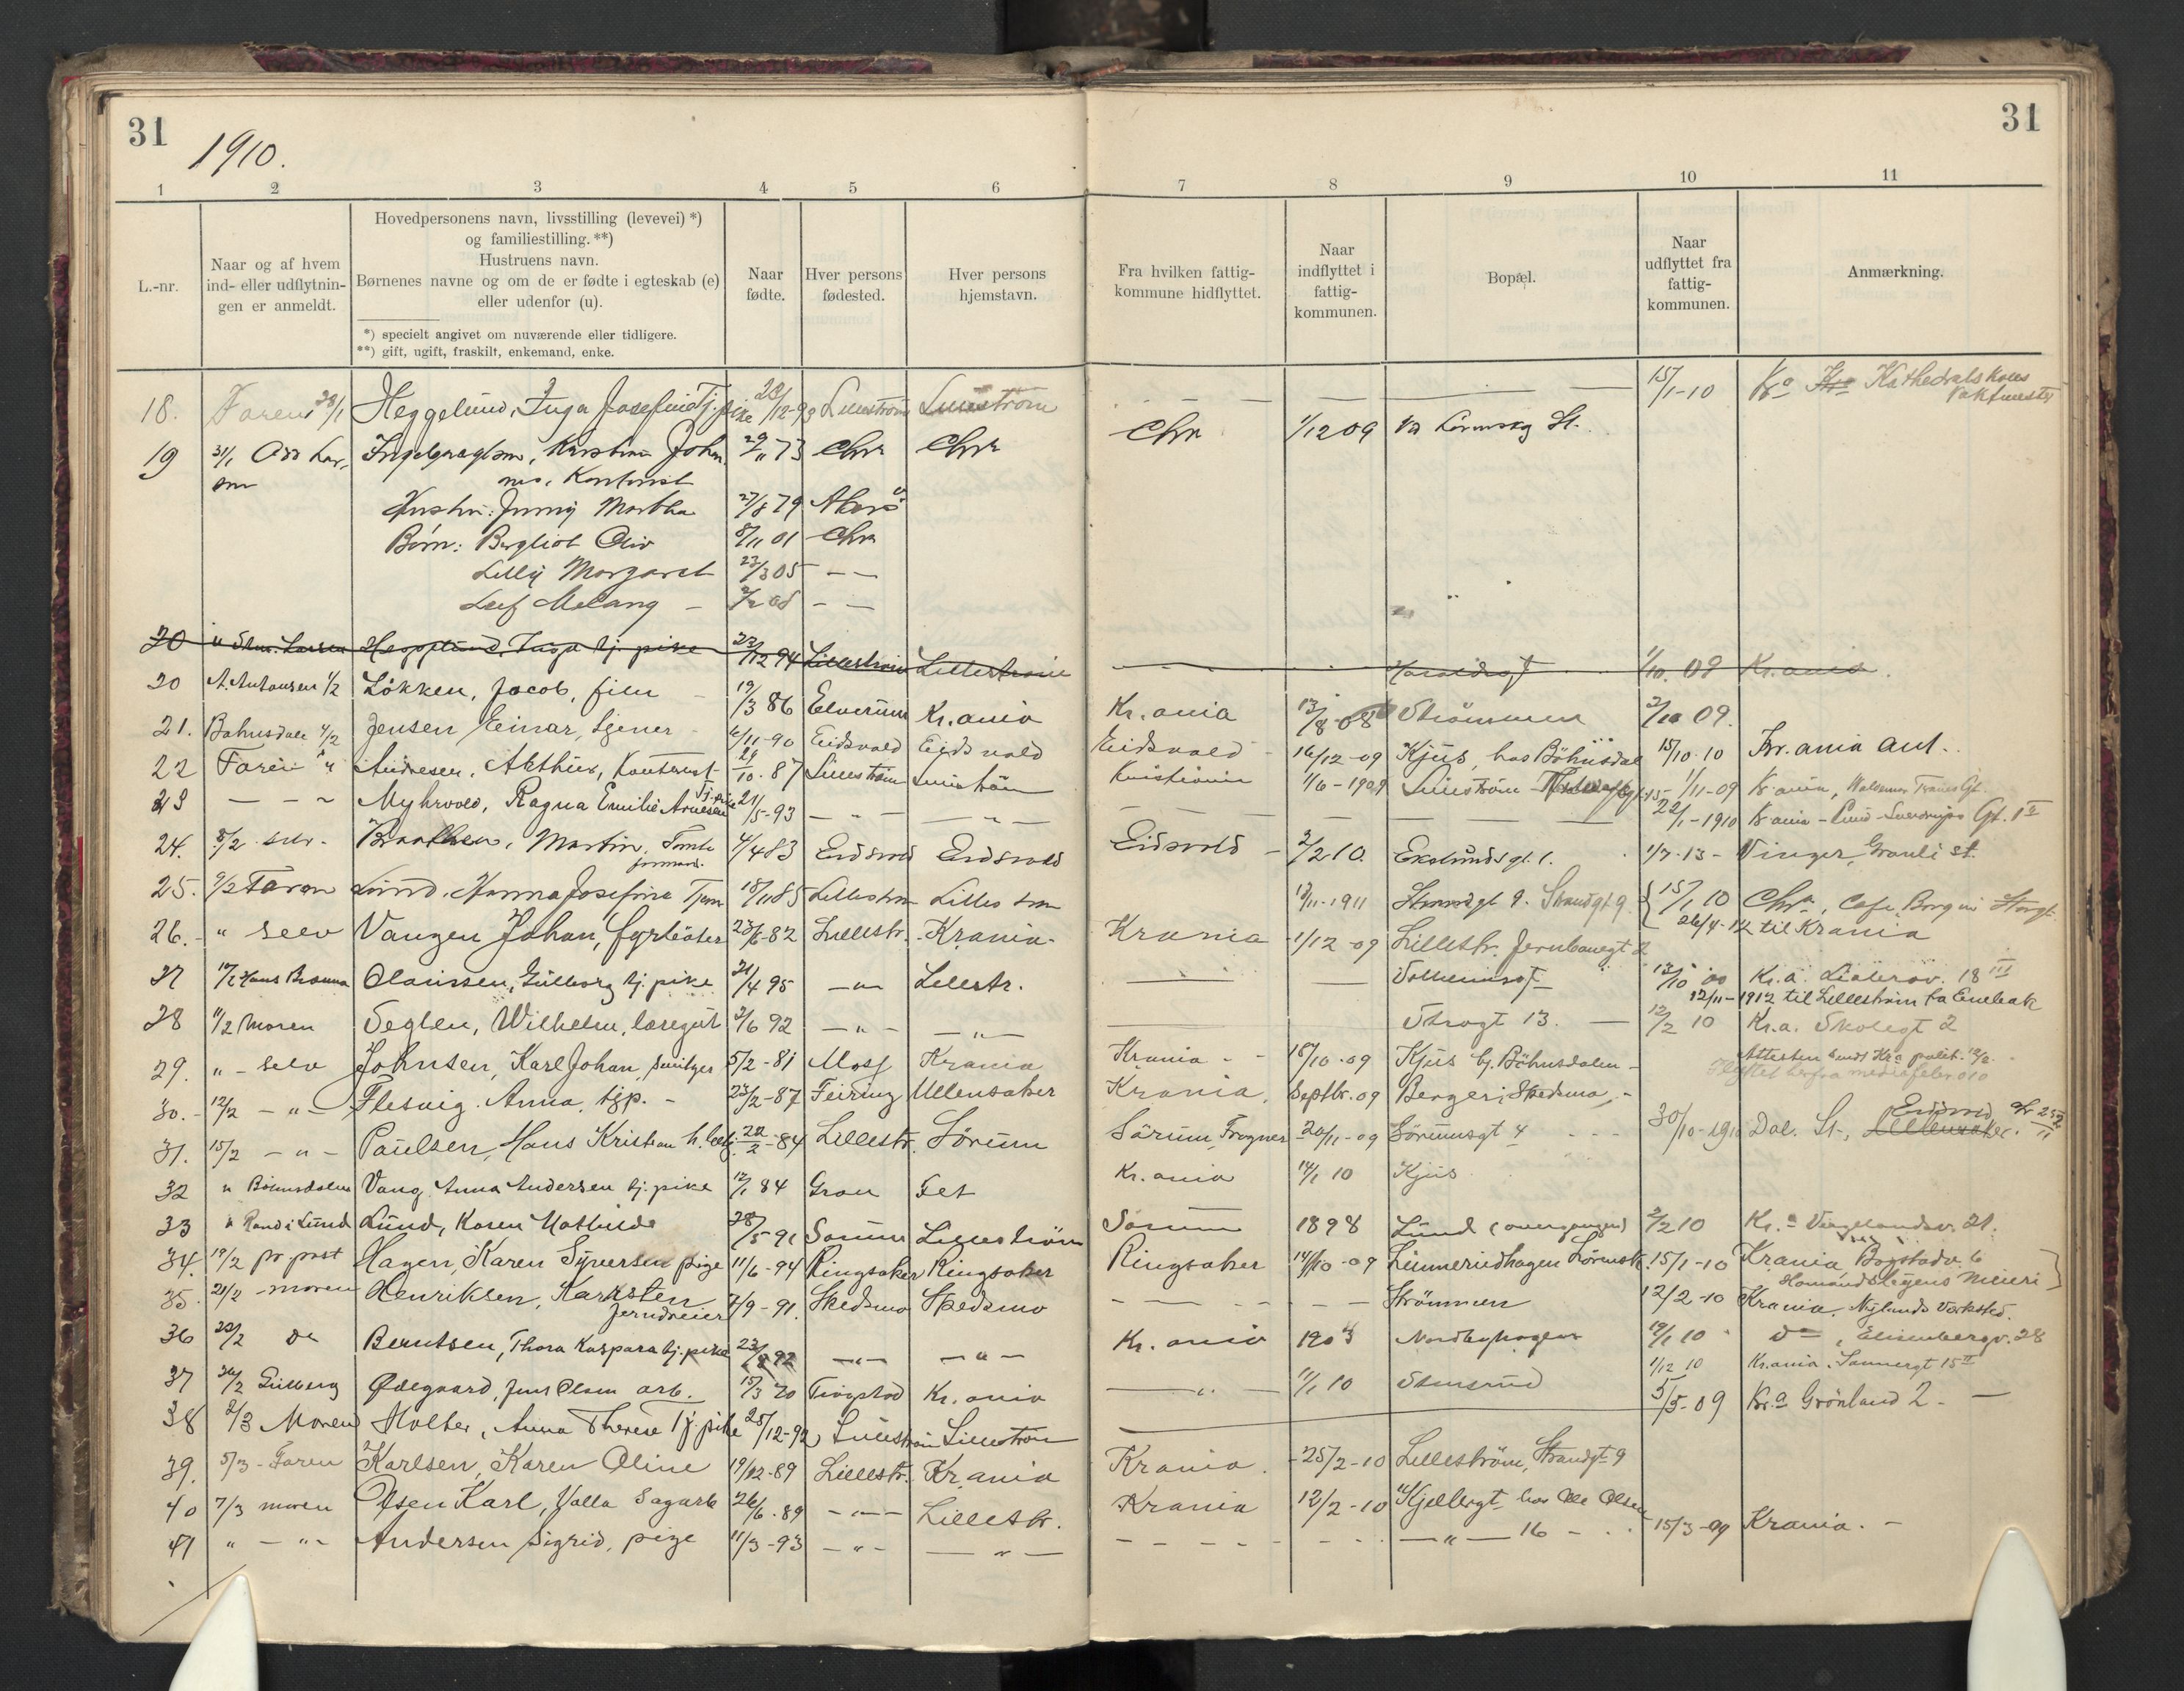 31
31
1910.
1 2 3 4 5 6 7 8 9 10 11
L.-nr.
Naar og af hvem
ind- eller udflytnin-
gen er anmeldt.
Hovedpersonens navn, livsstilling (levevei) *)
og familiestilling. **)
Hustruens navn.
Børnenes navne og om de er fødte i egteskab (e)
eller udenfor (u).
*) specielt angivet om nuværende eller tidligere.
**) gift, ugift, fraskilt, enkemand, enke.
Naar
fødte.
Hver persons
fødested.
Hver persons
hjemstavn.
Fra hvilken fattig-
kommune hidflyttet.
Naar
indflyttet i
fattig-
kommunen.
Bopæl.
Naar
udflyttet fra
fattig-
kommunen.
Anmærkning.
18. Faren 28/1 Heggelund, Inga Josefine Tj. pike Lillestrøm Lillestrøm 15/1-10 Kra Kathedralskoles
19 31/1 29/11 73 Chra Chra Chra 1/12 09
Hustru: Jenny Martha 27/8 79
Børn: Bergliot 8/11 01 Chra
Lilly Margaret 23/3 05 — —
Leif
20 Heggelund, Inga tj. pike 23/12 94 Lillestrøm Lillestrøm 1/10. 09 Kr.ania.
20 A. Antonsen 1/2 Løkken, Jacob, 19/3 86 Elverum Kr. ania Kr. ania 13/8-08 Strømmen 2/10 09.
21. Bøhnsdale 4/2 Jensen Einar, 6/11-90 Eidsvold Eidsvold Eidsvold - 16/12-09 Kjus, hos Bøhnsdal 15/10-10 Kr. ania
22 Faren " Andresen, Arthur, Kontorist - 29/10. 87 Lillestrøm Lillestrøm Kristiania 1/6-1909 Lillestrøm 1/11-09 Kr ania,
23 — - " Myhrvold, Ragna Emilie Arnesen Tj. pike 21/5-93 — " — — " — 22/1-1910 Kr ania -
24. 8/2 selv - Braathen, Martin, Tomte
formand. 4/4 83 Eidsvold Eidsvold Eidsvold - 2/2 10. 1/7-13 - Vinger, Granli st.
25. 9/2 Faren Lund, Hanna Josefine Tjen 18/11 85 Lillestrøm Lillestrøm 13/11-1911 Strandgt 9. Strandgt. 9 15/1 10 Chra, Cafe
26/4-12 til Krania
26. - " selv Vangen Johan, fyrbøter 23/6-82 Lillestr. Krania - Krania - 1/12-09 Lillestr. Jernbanegt 2
27 Olaussen, Gudborg tj. pike 21/4 95 — " — Lillestr. 13/10 09 Kr.a. 18 III
12/11-1912 til Lillestrøm fra Enebak
28 11/2 Moren Seglen, Wilhelm, læregut 2/6 92 — " — — " — Storgt 13. — 12/2 10 Kr.a. Skolegt 2
29. " - selv Johnsen, Karl Johan, 5/2-81 Moss Krania Krania - - 18/10-09 Kjus
30. - 12/2 - " - Flesvig. Anna, tjp. - 23/2-87 Feiring Ullensaker Krania. Septbr. 09 Berger i Skedsmo, -
31. 15/2 - " - Paulsen, Hans Kristian 22/2-84 Lillestr. Sørum Sørum, Frogner 20/11-09 Sørumsgt 4 - - - 30/10-1910 Dal. St., Ullensaker. Eidsvold
32 " Bøhnsdalen Vang Anna Andersen tj. pike 12/1 84 Gran Fet Kr. ania 14/1 10 Kjus
33 " Randi Lund Lund, Karen Mathilde 28/5-91 Sørum Lillestrøm Sørum 1898 Lund (overgangen) 2/2 10 Kr.a 21.
34. 19/2 pr. post Hagen, Karen Syversen pige 11/6-94 Ringsaker Ringsaker Ringsaker 14/10-09 Linnerudhagen Lørensk. 15/1-10 Krania Bogstadv. 6
35. 21/2 - moren Henriksen, Karsten
Jerndreier 7/9-91. Skedsmo Skedsmo Strømmen 12/2-10 Krania. Nylands Værksted.
36 22/2 Do Berntsen, Thora Kaspara tj. pike 23/8 92 — " — — " — Kr. ania Nordbyhagen 19/1 10 Do, Elisenbergv. 28
1/12 10 Kr.ania. Sannergt 15 II
37 26/2 Gulberg Ødegaard, Jens Olsen arb. 15/3 70 Trøgstad Kr. ania — " — 11/1 10 Stensrud
38 2/3 Moren Holter, Anna Therese Tj. pike 25/12-92 Lillestrøm Lillestrøm 5/5-09 Kr.a Grønland 2 - —
39. 5/3 - Faren Karlsen, Karen Oline 19/12-89 Lillestr. Krania Krania. - 25/2-10 Lillestrøm, Strandgt 9
40 7/3 moren Olsen Karl, Valla Sagarb 26/6.89 - " - Lillestr. Krania 12/2-10 Kjellergt. hos Ole Olsen
41 " - " - Andersen Sigrid, pige 11/3-93 — " — — " — — " — 16 - - . 15/3-09 Krania. -